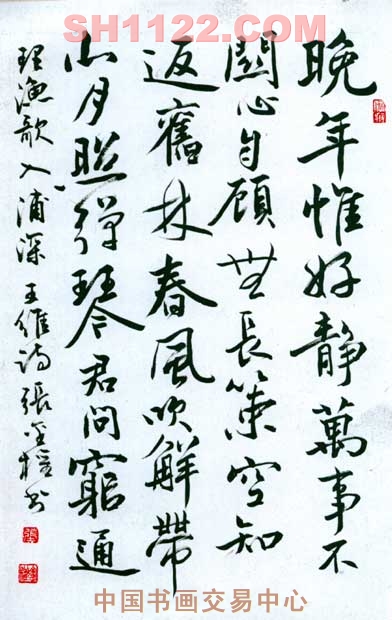 SH1122.COM
晚年惟好靜萬事不
關心自顧無長策空知
返舊林春風吹解帶
山月照彈琴君問窮通
理漁歌入浦深 王維詩 張
中国书画交易中心